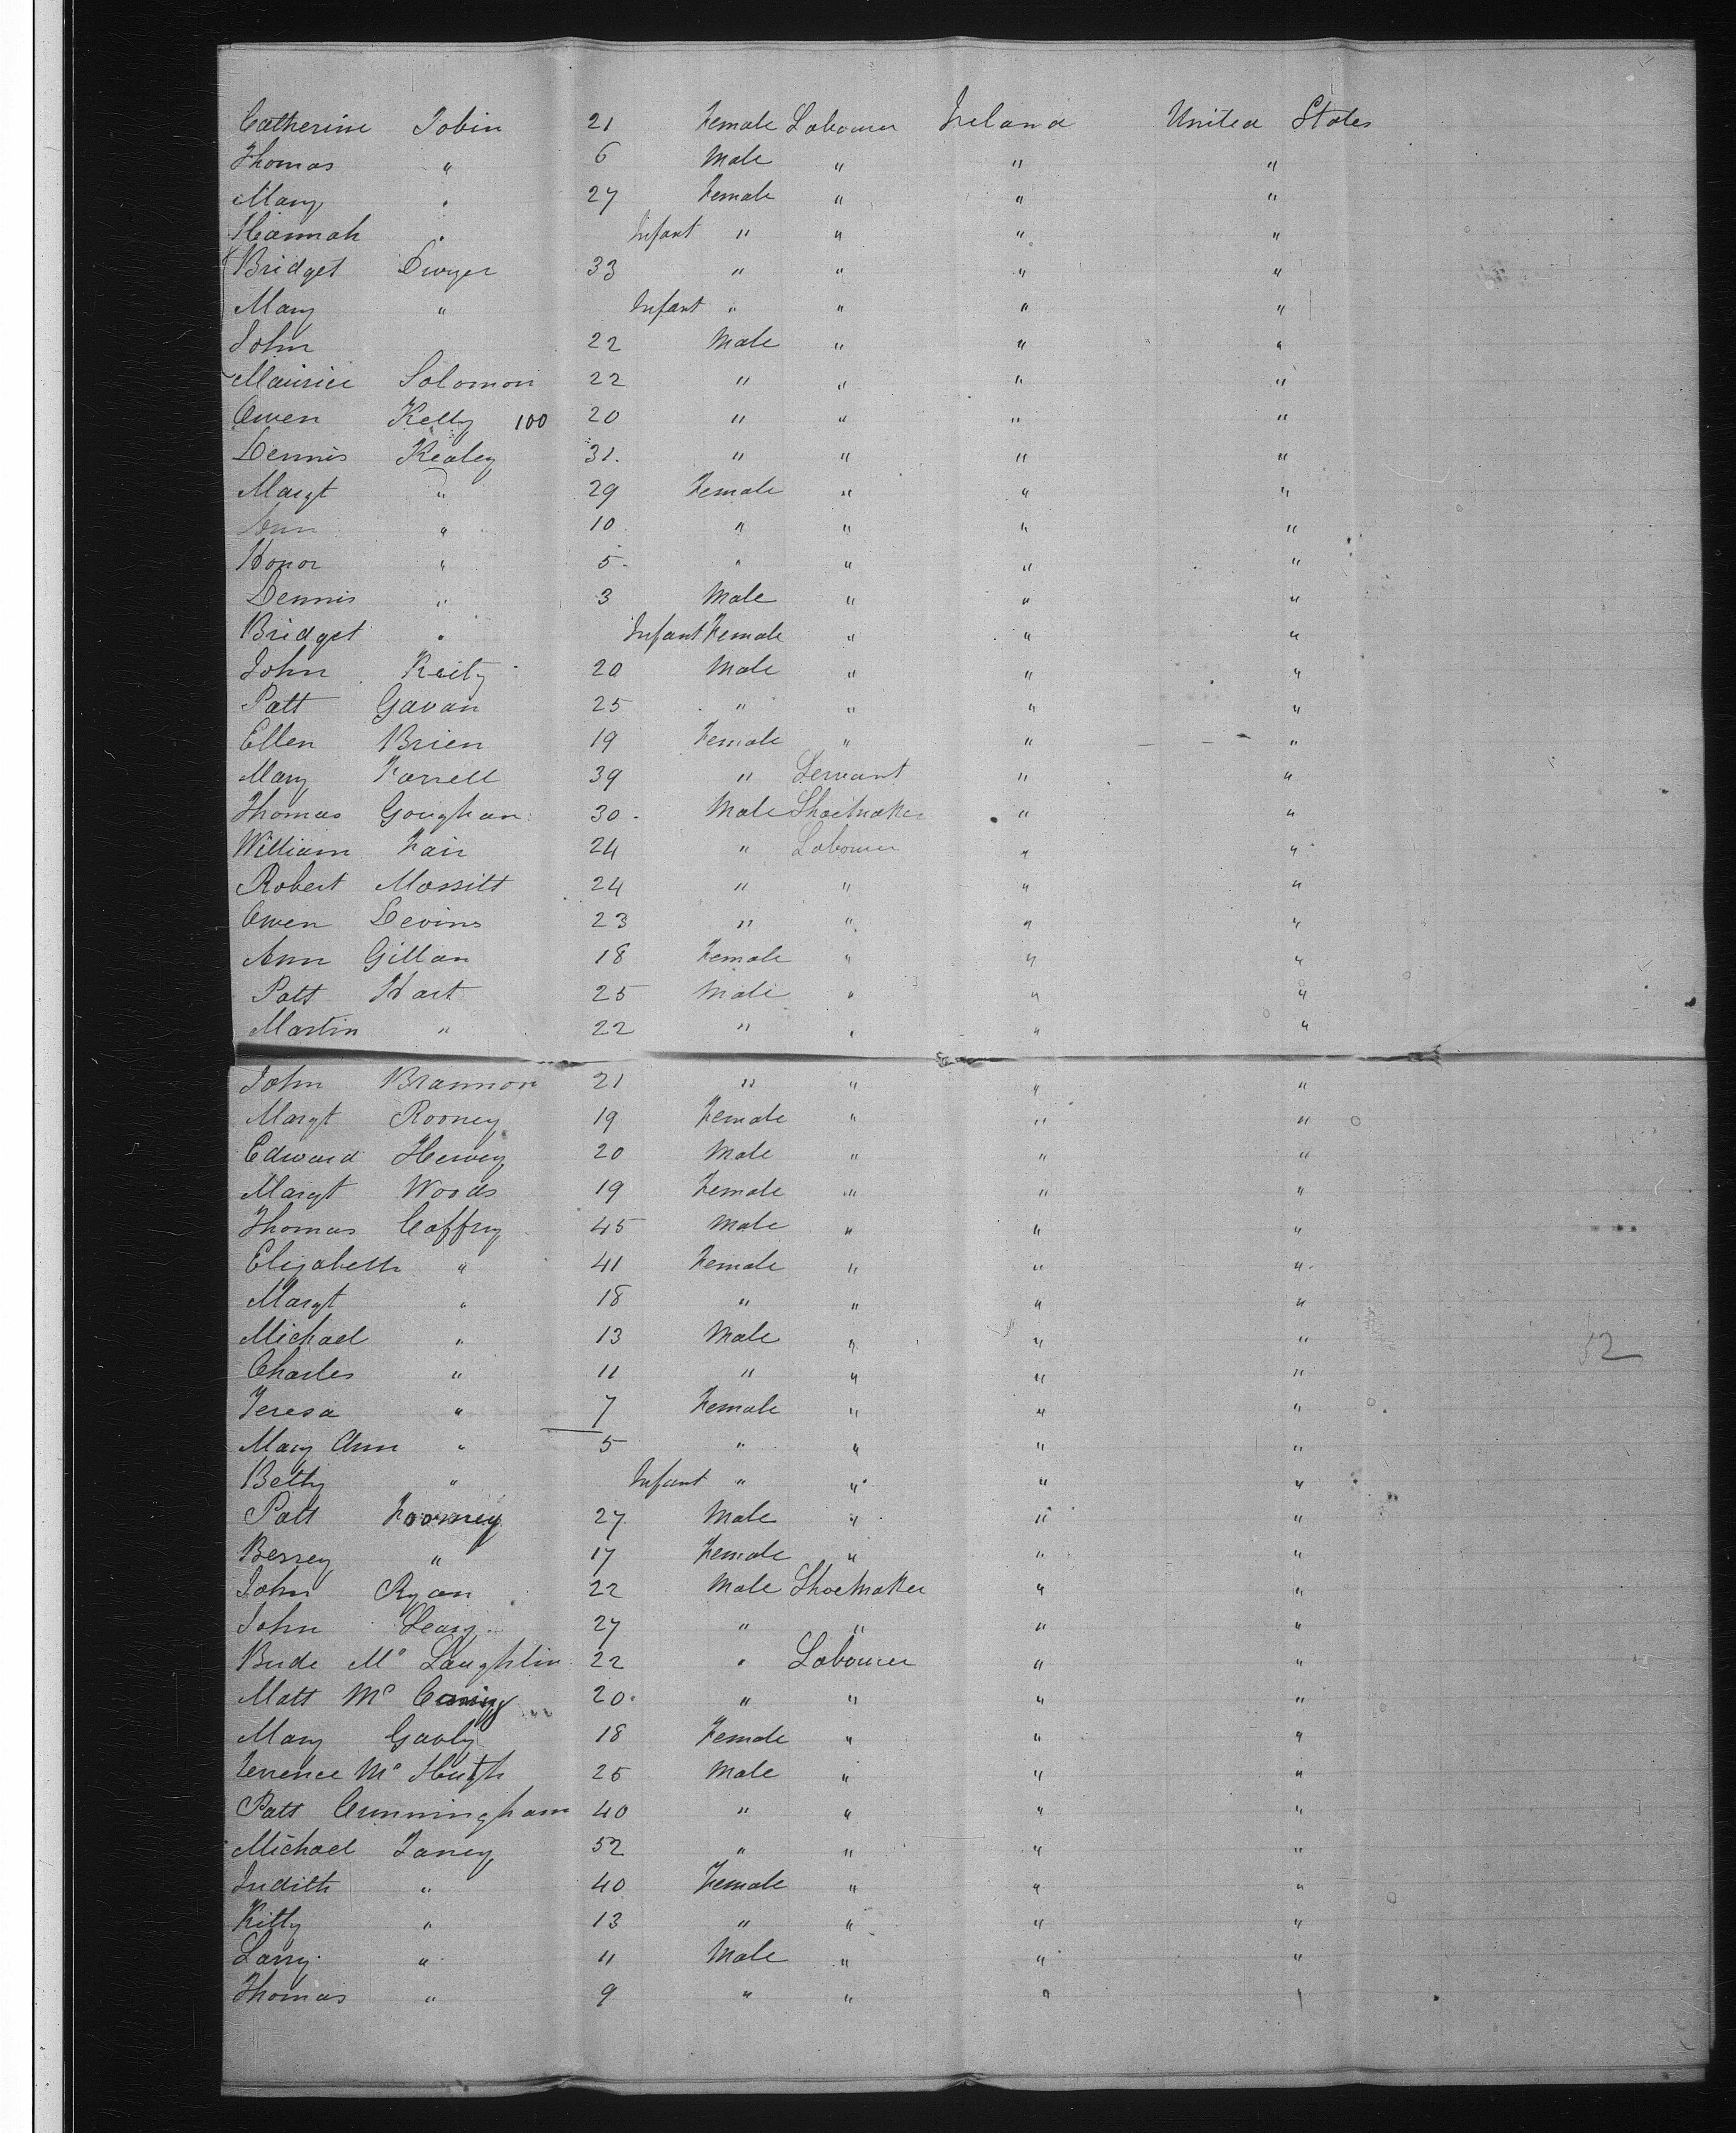 Catherine Tobin 21 Female Labourer Ireland United States
Thomas " 6 Male " " "
Mary " 27 Female " " "
Hannah " Infant " " " "
Bridget Dwyer 33 " " " "
Mary " Infant " " " "
John 22 Male " " "
Maurice Solomon 22 " " " "
Owen Kelly 100 20 " " " "
Dennis Kealey 31. " " " "
Margt " 29 Female " " "
Ann " 10 " " " "
Honor " 5 " " " "
Dennis " 3 Male " " "
Bridget " Infant Female " " "
John 20 Male " " "
Patt Gavan 25 " " " "
Ellen Brien 19 Female " " "
Mary Farrell 39 " Servant " "
Thomas Goughan 30 Male Shoemaker " "
William Fair 24 " Labourer " "
Robert 24 " " " "
Owen Devins 23 " " " "
Ann Gillan 18 Female " " "
Patt Hart 25 Male " " "
Martin " 22 " " " "
John Brannon 21 " " " "
Margt Rooney 19 Female " " "
Edward Hervey 20 Male " " "
Margt Woods 19 Female " " "
Thomas Caffry 45 Male " " "
Elizabeth " 41 Female " " "
Margt " 18 " " " "
Michael " 13 Male " " "
Charles " 11 " " " "
Teresa " 7 Female " " "
Mary Ann " 5 " " " "
Betty " Infant " " " "
Patt 27 Male " " "
Bessey " 17 Female " " "
John Ryan 22 Male Shoemaker " "
John Leary 27 " " " "
Mc Laughlin 22 " Labourer " "
Matt Mc 20 " " " "
Mary 18 Female " " "
Terrence Mc Hugh 25 Male " " "
Patt Cunningham 40 " " " "
Michael 52 " " " "
Judith " 40 Female " " "
Kitty " 13 " " " "
Larry " 11 Male " " "
Thomas " 9 " " "